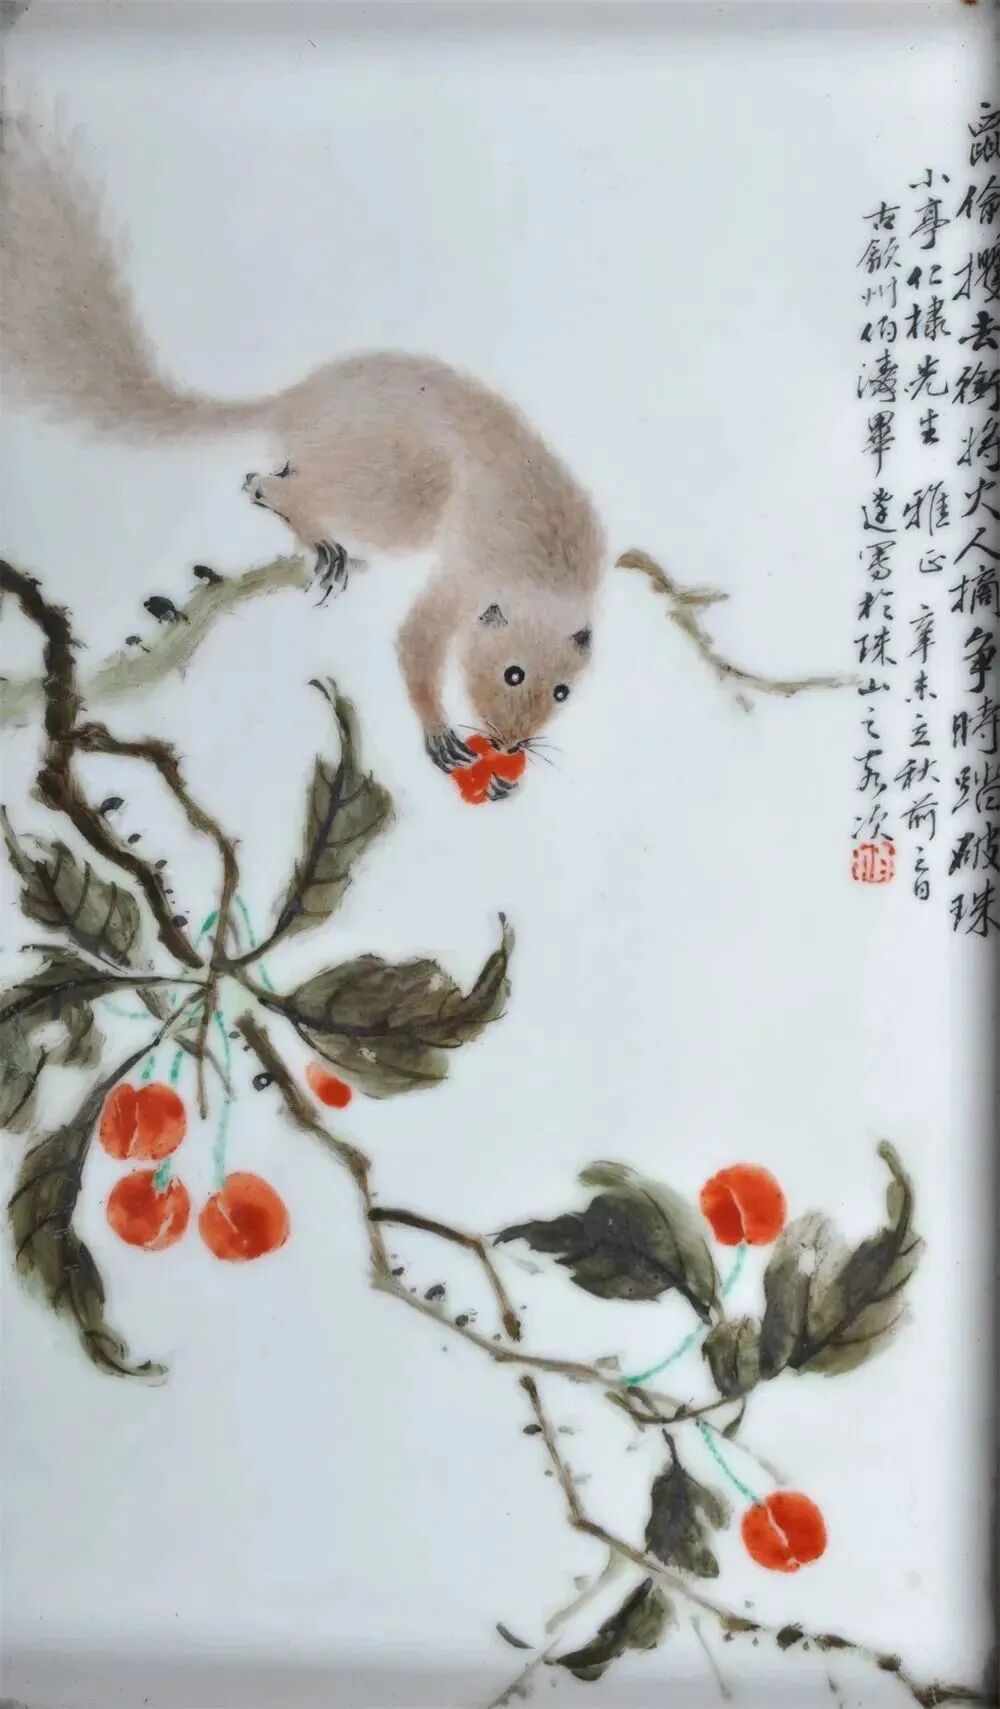 鼠偷攫去銜將火人摘爭時踏破珠
小亭仁棣先生 雅正 辛未立秋前三日
古歙州伯濤畢達寫於珠山之客次